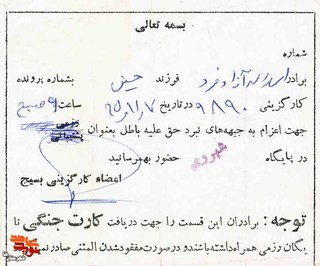 بسمه تعالی
شماره
برادر اسداله آزاد فرد فرزند حسن بشماره پرونده
کارگزینی ۹۸۹۰ در تاریخ ۶۵/۱/۱۷ ساعت ۹ صبح
جهت اعزام به جبهه‌های نبرد حق علیه باطل بعنوان رزمی پشتیبانی
در پایگاه حضور بهمرسانید
امضاء کارگزینی بسیج
توجه : برادران این قسمت را جهت دریافت کارت جنگی تا
یگان رزمی همراه داشته باشند و در صورت مفقود شدن المثنی صادر نمیشود